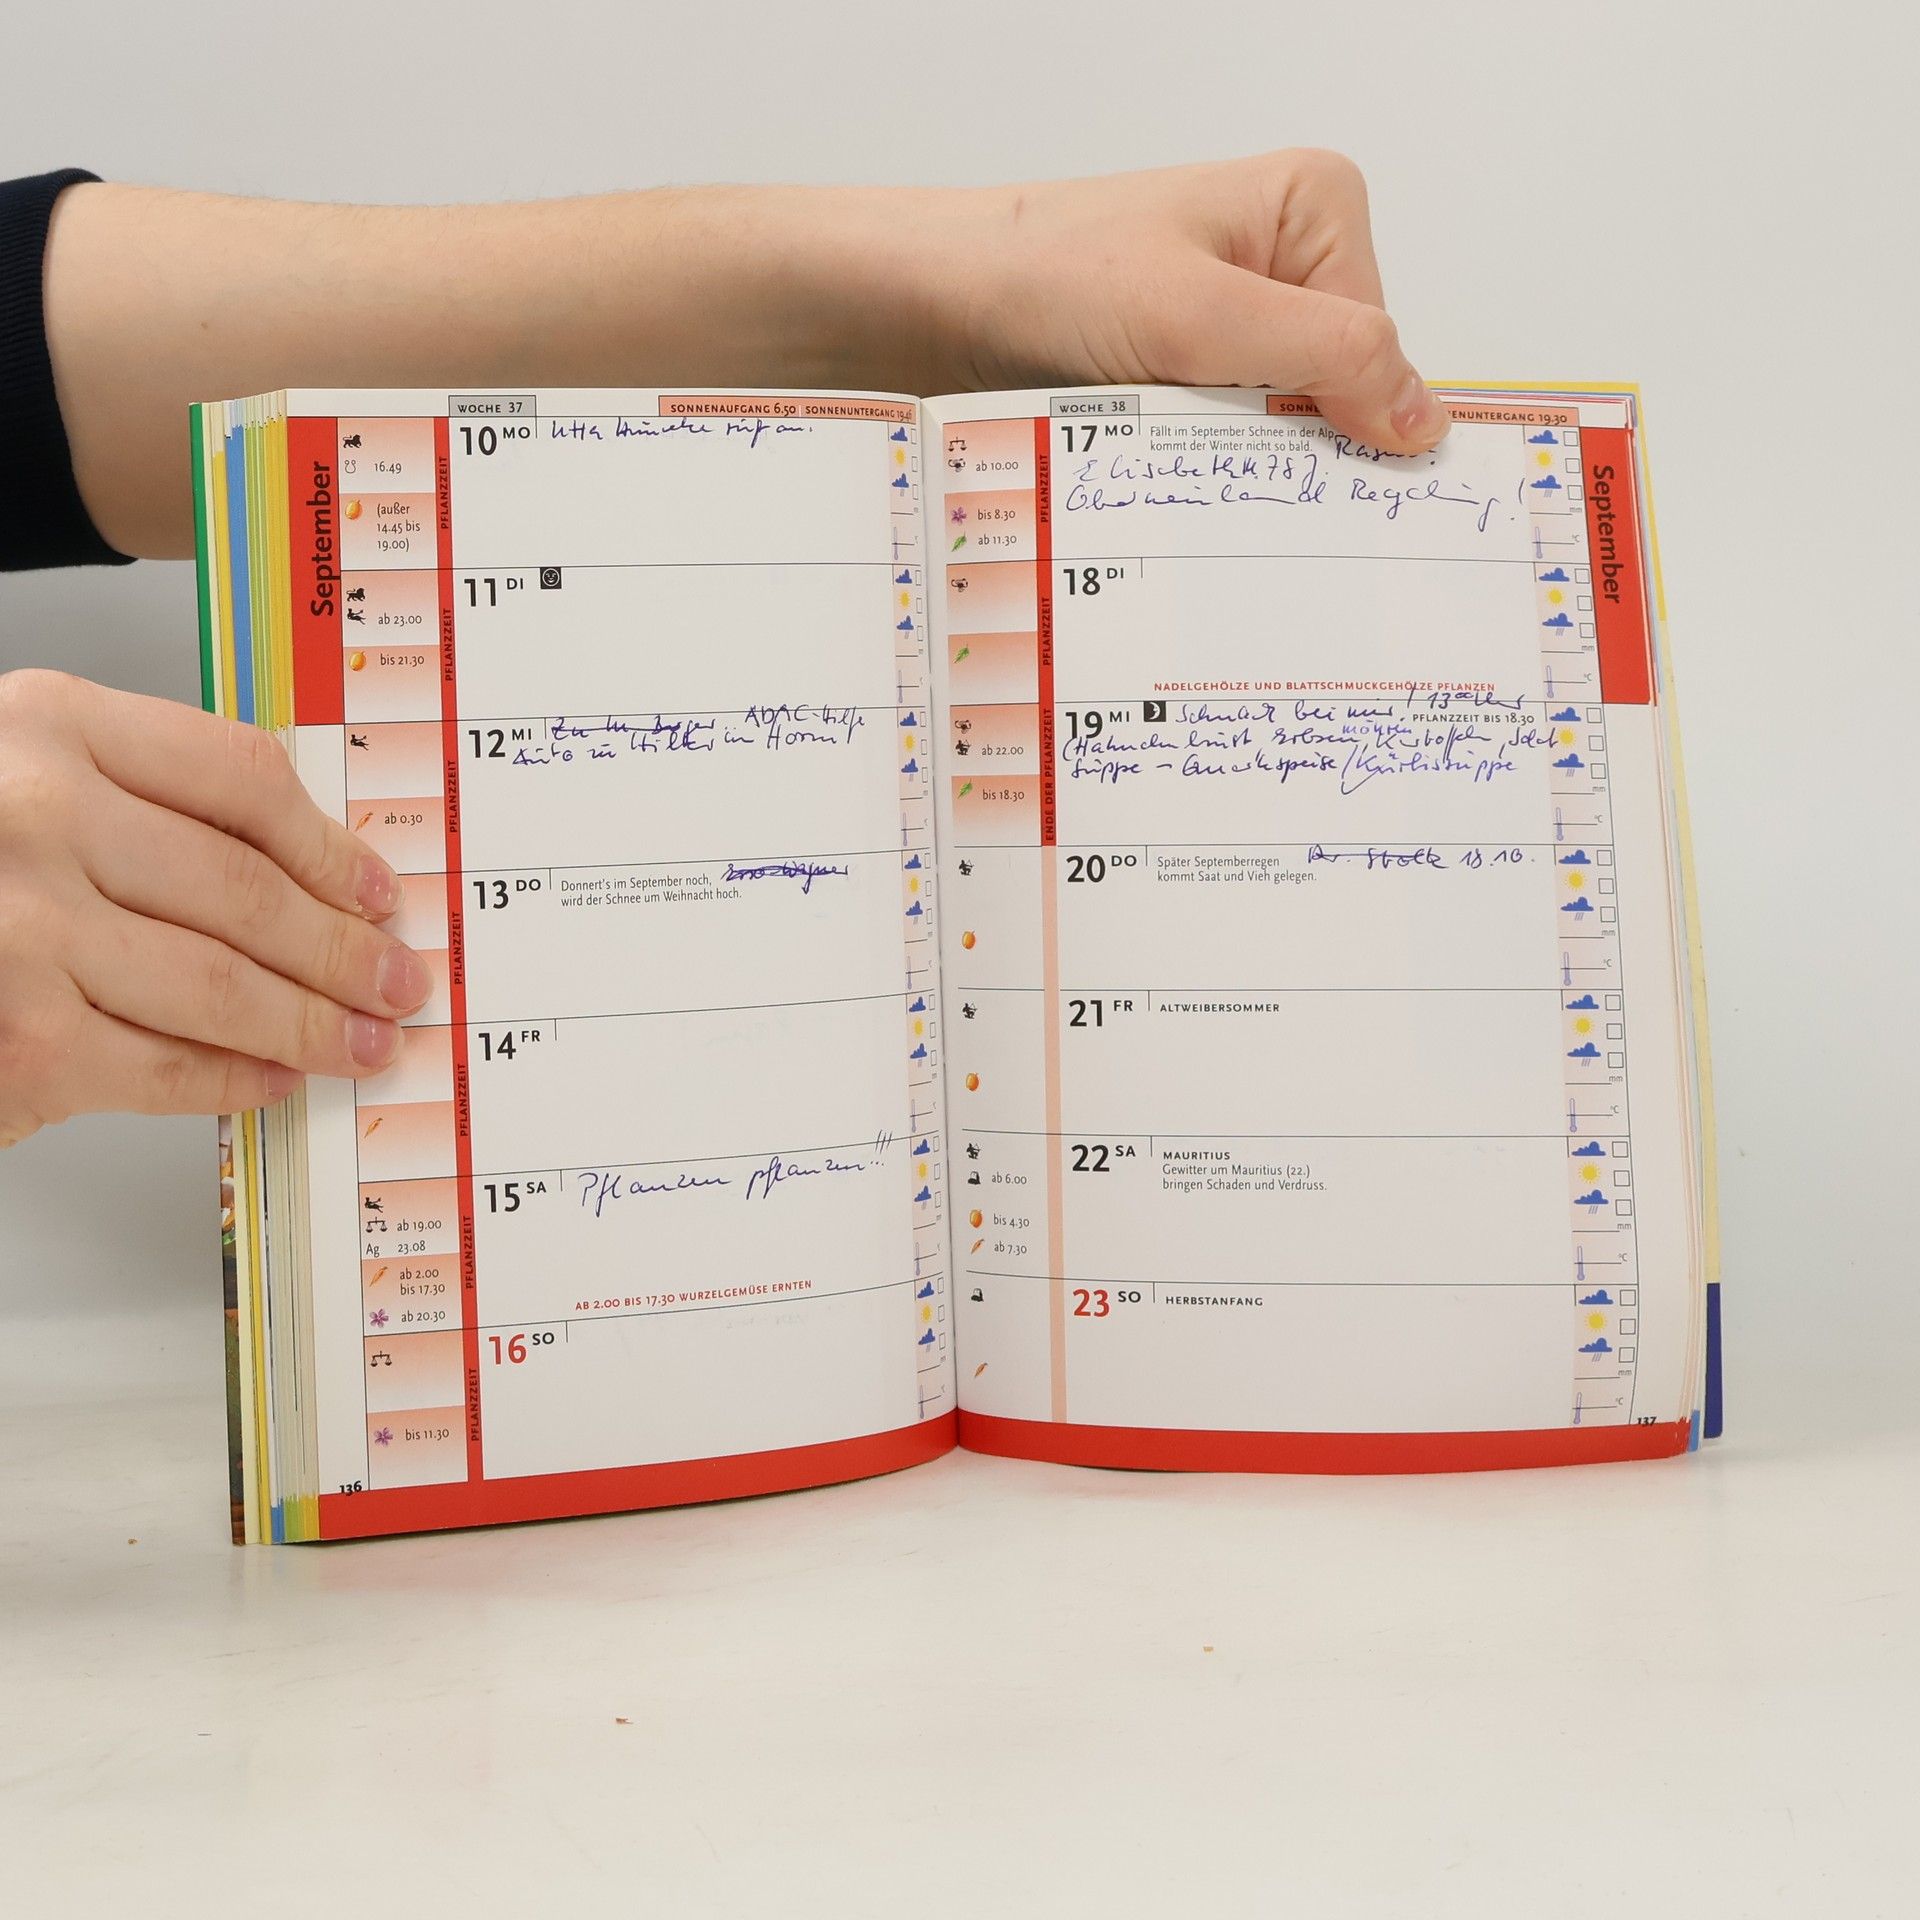 WOCHE 37
SONNENAUFGANG 6.50 SONNENUNTERGANG 19.46
September
10 MO
ruft an.
16.49
(außer
14.45 bis
19.00)
PFLANZZEIT
11 DI
ab 23.00
bis 21.30
PFLANZZEIT
12 MI
ADAC-Hilfe
Auto zu
ab 0.30
PFLANZZEIT
13 DO
Donnert's im September noch,
wird der Schnee um Weihnacht hoch.
PFLANZZEIT
14 FR
PFLANZZEIT
15 SA
Pflanzen pflanzen!!!
ab 19.00
Ag 23.08
ab 2.00
bis 17.30
ab 20.30
PFLANZZEIT
AB 2.00 BIS 17.30 WURZELGEMÜSE ERNTEN
16 SO
bis 11.30
PFLANZZEIT
136
WOCHE 38
SONNE
ENUNTERGANG 19.30
September
17 MO
Fällt im September Schnee in der Alp
kommt der Winter nicht so bald.
Elisabeth 78 J.
Recycling!
ab 10.00
bis 8.30
ab 11.30
PFLANZZEIT
mm
°C
18 DI
PFLANZZEIT
NADELGEHÖLZE UND BLATTSCHMUCKGEHÖLZE PFLANZEN
mm
°C
19 MI
bei mir! 13°° Uhr
PFLANZZEIT BIS 18.30
möhren
Erbsen, Kartoffeln, Salat
Suppe - Quarkspeise / Kürbissuppe
ab 22.00
bis 18.30
ENDE DER PFLANZZEIT
mm
°C
20 DO
Später Septemberregen
kommt Saat und Vieh gelegen.
18.10.
mm
°C
21 FR
ALTWEIBERSOMMER
mm
°C
22 SA
MAURITIUS
Gewitter um Mauritius (22.)
bringen Schaden und Verdruss.
ab 6.00
bis 4.30
ab 7.30
mm
°C
23 SO
HERBSTANFANG
mm
°C
137